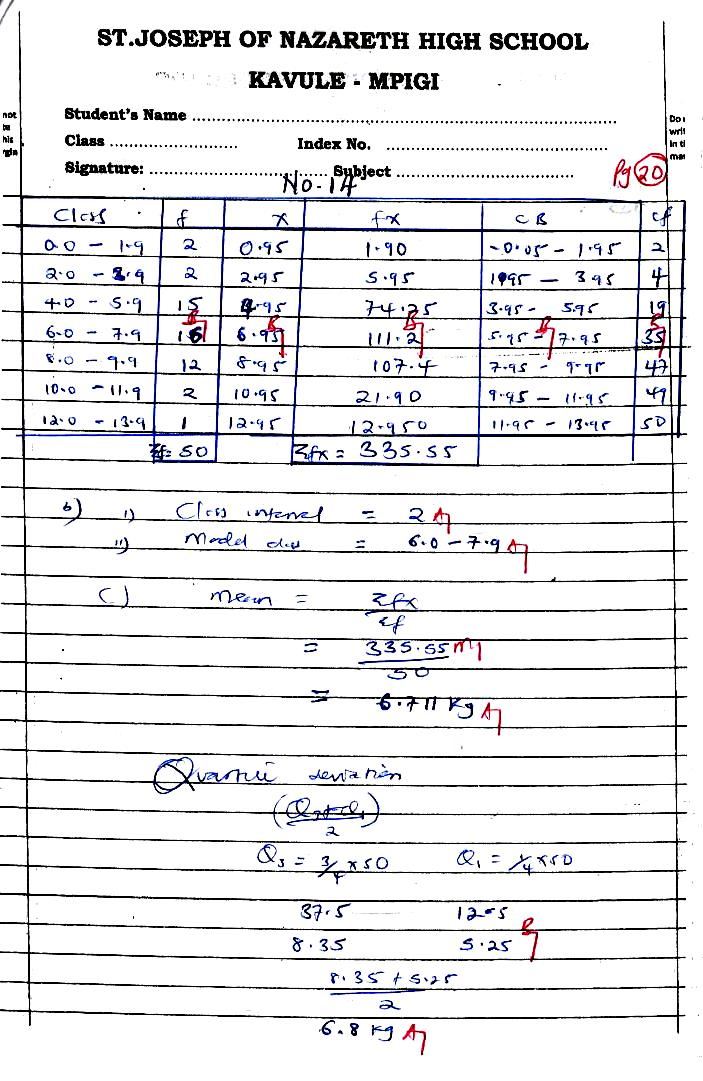 ST.JOSEPH OF NAZARETH HIGH SCHOOL
KAVULE - MPIGI
Student's Name
Class Index No.
Signature: Subject
No. 14 Pg 20
Class f x fx CB cf
0.0 - 1.9 2 0.95 1.90 -0.05 - 1.95 2
2.0 - 3.9 2 2.95 5.95 1.95 - 3.95 4
4.0 - 5.9 15 4.95 74.25 3.95 - 5.95 19
6.0 - 7.9 16 6.95 111.2 5.95 - 7.95 35
8.0 - 9.9 12 8.95 107.4 7.95 - 9.95 47
10.0 - 11.9 2 10.95 21.90 9.95 - 11.95 49
12.0 - 13.9 1 12.95 12.950 11.95 - 13.95 50
Σf = 50 Σfx = 335.55
b) i) Class interval = 2 A1
ii) Modal class = 6.0 - 7.9 A1
c) mean = Σfx
Σf
= 335.55 M1
50
= 6.711 kg A1
Quartile deviation
2
Q3 = 3/4 x 50 Q1 = 1/4 x 50
37.5 12.5
8.35 5.25 B1
8.35 + 5.25
2
6.8 kg A1